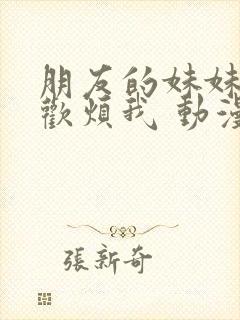 朋友的妹妹
歡煩我 動漫
張新奇